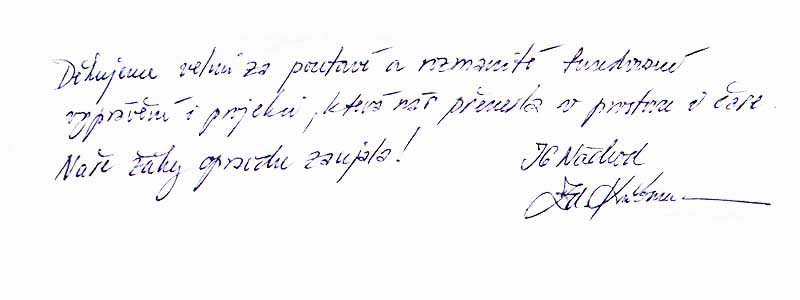 Děkujeme velmi za poutavé a rozmanité fundované
vyprávění i projekci, která nás přenesla v prostoru i čase.
Naše žáky opravdu zaujala!
JG Náchod